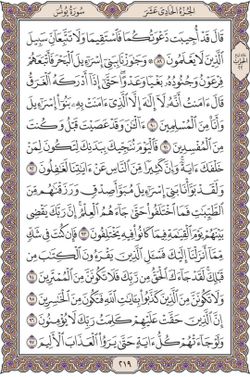 الجزء الحادي عشر
سورة يونس
قَالَ قَدْ أُجِيبَت دَّعْوَتُكُمَا فَاسْتَقِيمَا وَلَا تَتَّبِعَانِّ سَبِيلَ
الَّذِينَ لَا يَعْلَمُونَ ٨٩ وَجَاوَزْنَا بِبَنِي إِسْرَائِيلَ الْبَحْرَ فَأَتْبَعَهُمْ
فِرْعَوْنُ وَجُنُودُهُ بَغْيًا وَعَدْوًا حَتَّى إِذَا أَدْرَكَهُ الْغَرَقُ
قَالَ آمَنتُ أَنَّهُ لَا إِلَهَ إِلَّا الَّذِي آمَنَتْ بِهِ بَنُو إِسْرَائِيلَ
وَأَنَا مِنَ الْمُسْلِمِينَ ٩٠ آلْآنَ وَقَدْ عَصَيْتَ قَبْلُ وَكُنتَ
مِنَ الْمُفْسِدِينَ ٩١ فَالْيَوْمَ نُنَجِّيكَ بِبَدَنِكَ لِتَكُونَ لِمَنْ
خَلْفَكَ آيَةً وَإِنَّ كَثِيرًا مِّنَ النَّاسِ عَنْ آيَاتِنَا لَغَافِلُونَ ٩٢
وَلَقَدْ بَوَّأْنَا بَنِي إِسْرَائِيلَ مُبَوَّأَ صِدْقٍ وَرَزَقْنَاهُم مِّنَ
الطَّيِّبَاتِ فَمَا اخْتَلَفُوا حَتَّى جَاءَهُمُ الْعِلْمُ إِنَّ رَبَّكَ يَقْضِي
بَيْنَهُمْ يَوْمَ الْقِيَامَةِ فِيمَا كَانُوا فِيهِ يَخْتَلِفُونَ ٩٣ فَإِن كُنتَ فِي شَكٍّ
مِّمَّا أَنزَلْنَا إِلَيْكَ فَاسْأَلِ الَّذِينَ يَقْرَءُونَ الْكِتَابَ مِن
قَبْلِكَ لَقَدْ جَاءَكَ الْحَقُّ مِن رَّبِّكَ فَلَا تَكُونَنَّ مِنَ الْمُمْتَرِينَ ٩٤
وَلَا تَكُونَنَّ مِنَ الَّذِينَ كَذَّبُوا بِآيَاتِ اللَّهِ فَتَكُونَ مِنَ الْخَاسِرِينَ ٩٥
إِنَّ الَّذِينَ حَقَّتْ عَلَيْهِمْ كَلِمَتُ رَبِّكَ لَا يُؤْمِنُونَ ٩٦
وَلَوْ جَاءَتْهُمْ كُلُّ آيَةٍ حَتَّى يَرَوُا الْعَذَابَ الْأَلِيمَ ٩٧
٢١٩